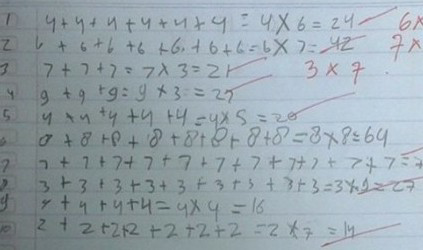 1 4+4+4+4+4+4 = 4×6 = 24 6×
2 6+6+6+6+6+6+6=6×7=42 7×
3 7+7+7=7×3=21 3×7
4 9+9+9=9×3=27
5 4+4+4+4+4=4×5=20
6 8+8+8+8+8+8+8+8=8×8=64
7 7+7+7+7+7+7+7+7+7+7+7=7
8 3+3+3+3+3+3+3+3+3=3×9=27
9 4+4+4+4=4×4=16
10 2+2+2+2+2+2+2=2×7=14